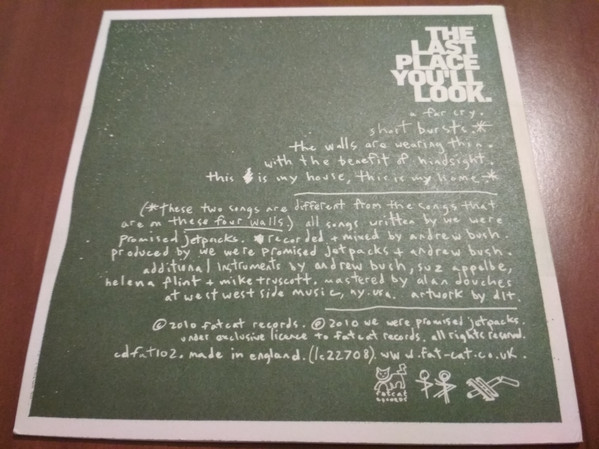 THE
LAST
PLACE
YOU'LL
LOOK.
a far cry.
short bursts.*
the walls are wearing thin.
with the benefit of hindsight.
this is my house, this is my home*
(*these two songs are different from the songs that
are on these four walls) all songs written by we were
promised jetpacks. recorded + mixed by andrew bush.
produced by we were promised jetpacks + andrew bush.
additional instruments by andrew bush, suz appelbe,
helena flint + mike truscott. mastered by alan douches
at west west side music, ny. usa. artwork by dlt.
© 2010 fatcat records. ℗ 2010 we were promised jetpacks.
under exclusive licence to fatcat records. all rights reserved.
cdfat102. made in england. (lc22708). www.fat-cat.co.uk.
fatcat
records